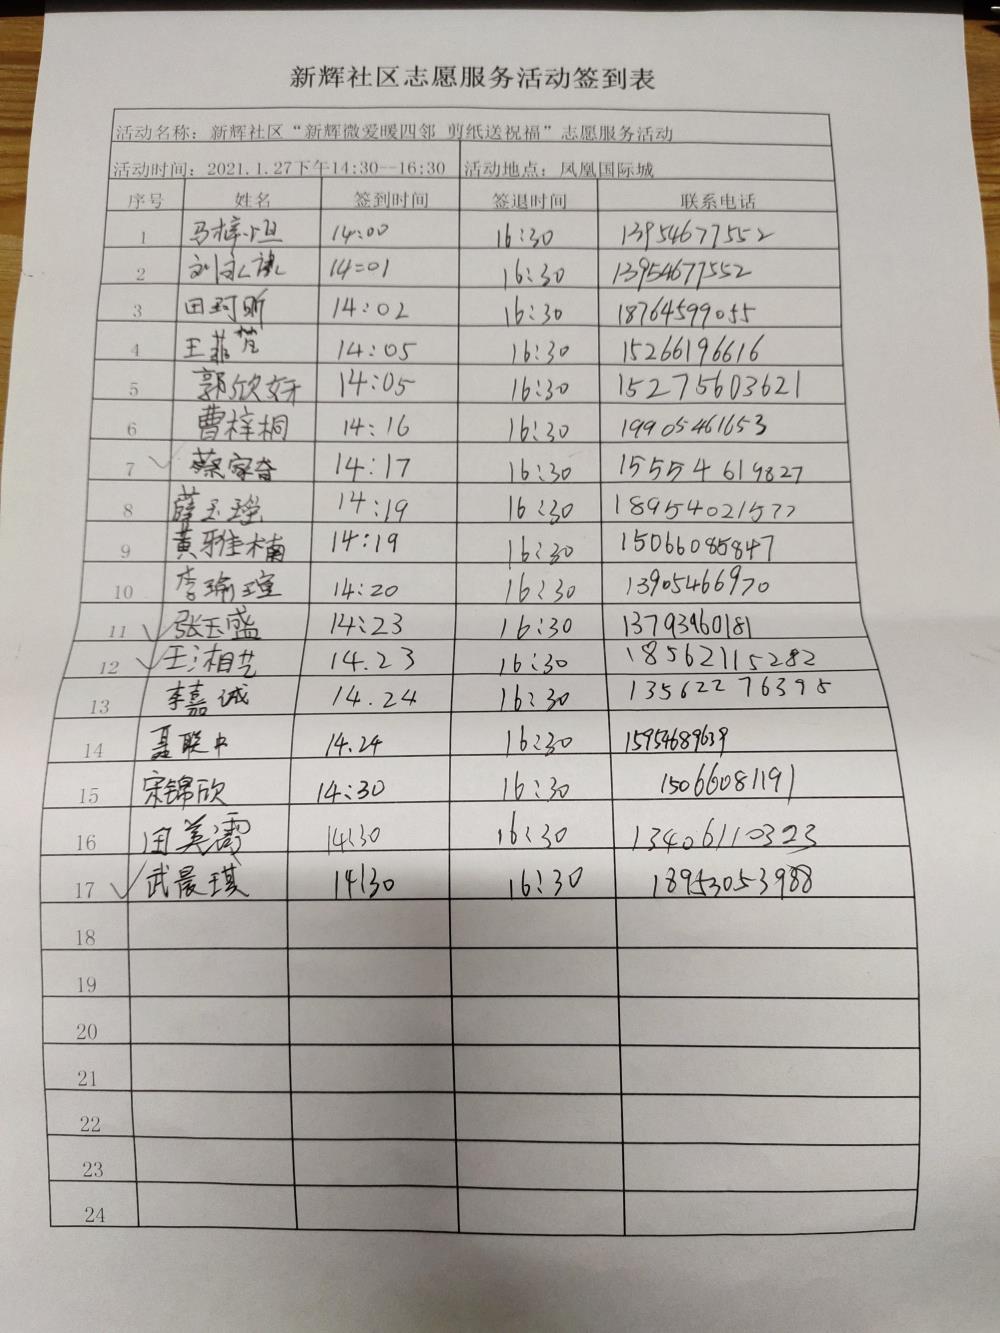 新辉社区志愿服务活动签到表
活动名称：新辉社区“新辉微爱暖四邻 剪纸送祝福”志愿服务活动
活动时间：2021.1.27下午14:30--16:30 活动地点：凤凰国际城
序号 姓名 签到时间 签退时间 联系电话
1 马梓恒 14:00 16:30 13954677552
2 14:01 16:30 13954677552
3 田珂昕 14:02 16:30 18764599055
4 王菲 14:05 16:30 15266196616
5 郭欣妤 14:05 16:30 15275603621
6 曹梓桐 14:16 16:30 19905461653
7 蔡家奇 14:17 16:30 15554619827
8 薛玉瑶 14:19 16:30
9 黄雅楠 14:19 16:30 15066085847
10 李瑜瑄 14:20 16:30 13905466970
11 张玉盛 14:23 16:30 13793960181
12 王湘艺 14.23 16:30 18562115282
13 李嘉诚 14.24 16:30 13562276395
14 聂联中 14.24 16:30 15954689639
15 宋锦欣 14:30 16:30 15066081191
16 田美 14:30 16:30 13406110323
17 武晨琪 14:30 16:30 18953053988
18
19
20
21
22
23
24